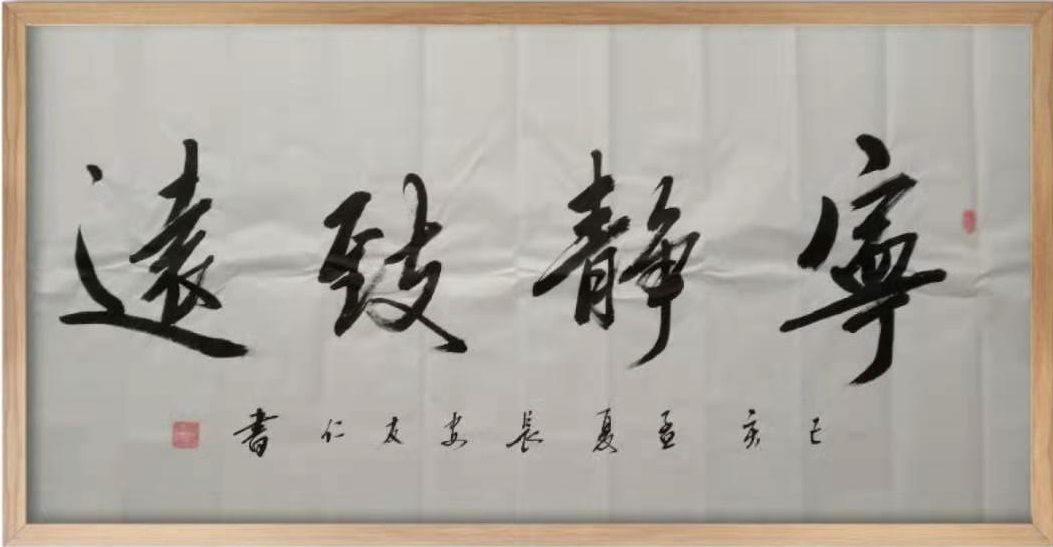 寧靜致遠
己亥孟夏長安友仁書